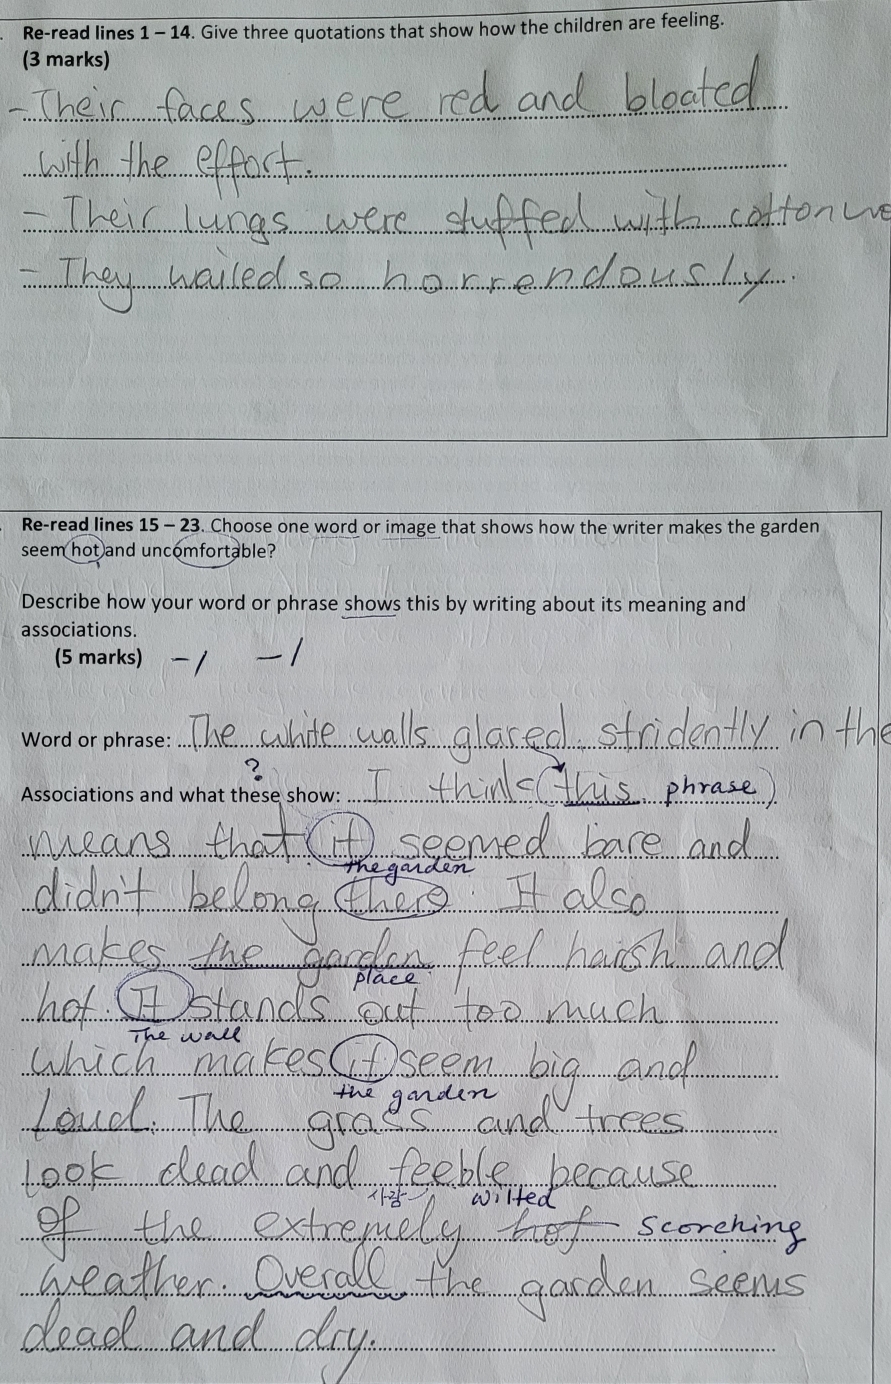 . Re-read lines 1 – 14. Give three quotations that show how the children are feeling.
(3 marks)
- Their faces were red and bloated
with the effort.
- Their lungs were stuffed with cotton wo
- They wailed so horrendously.
. Re-read lines 15 – 23. Choose one word or image that shows how the writer makes the garden
seem hot and uncomfortable?
Describe how your word or phrase shows this by writing about its meaning and
associations.
(5 marks) -1 -1
Word or phrase: The white walls glared stridently in the
?
Associations and what these show: I think this phrase
means that it seemed bare and
the garden
didn't belong there. It also
makes the garden feel harsh and
place
hot. It stands out too much
The wall
which makes it seem big and
the garden
Loud. The grass and trees
look dead and feeble because
사람 wilted
of the extremely hot scorching
weather. Overall the garden seems
dead and dry.